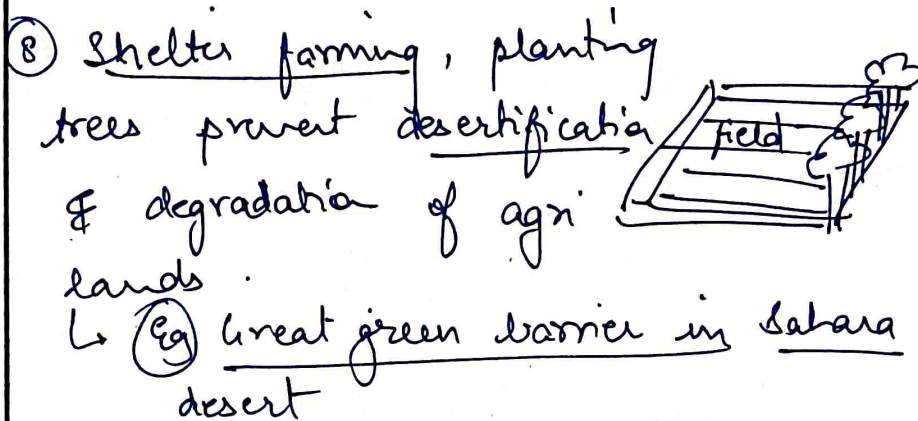 ⑧ Shelter farming, planting
trees prevent desertification
& degradation of agri
lands.
↳ Eg Great green barrier in Sahara
desert
field